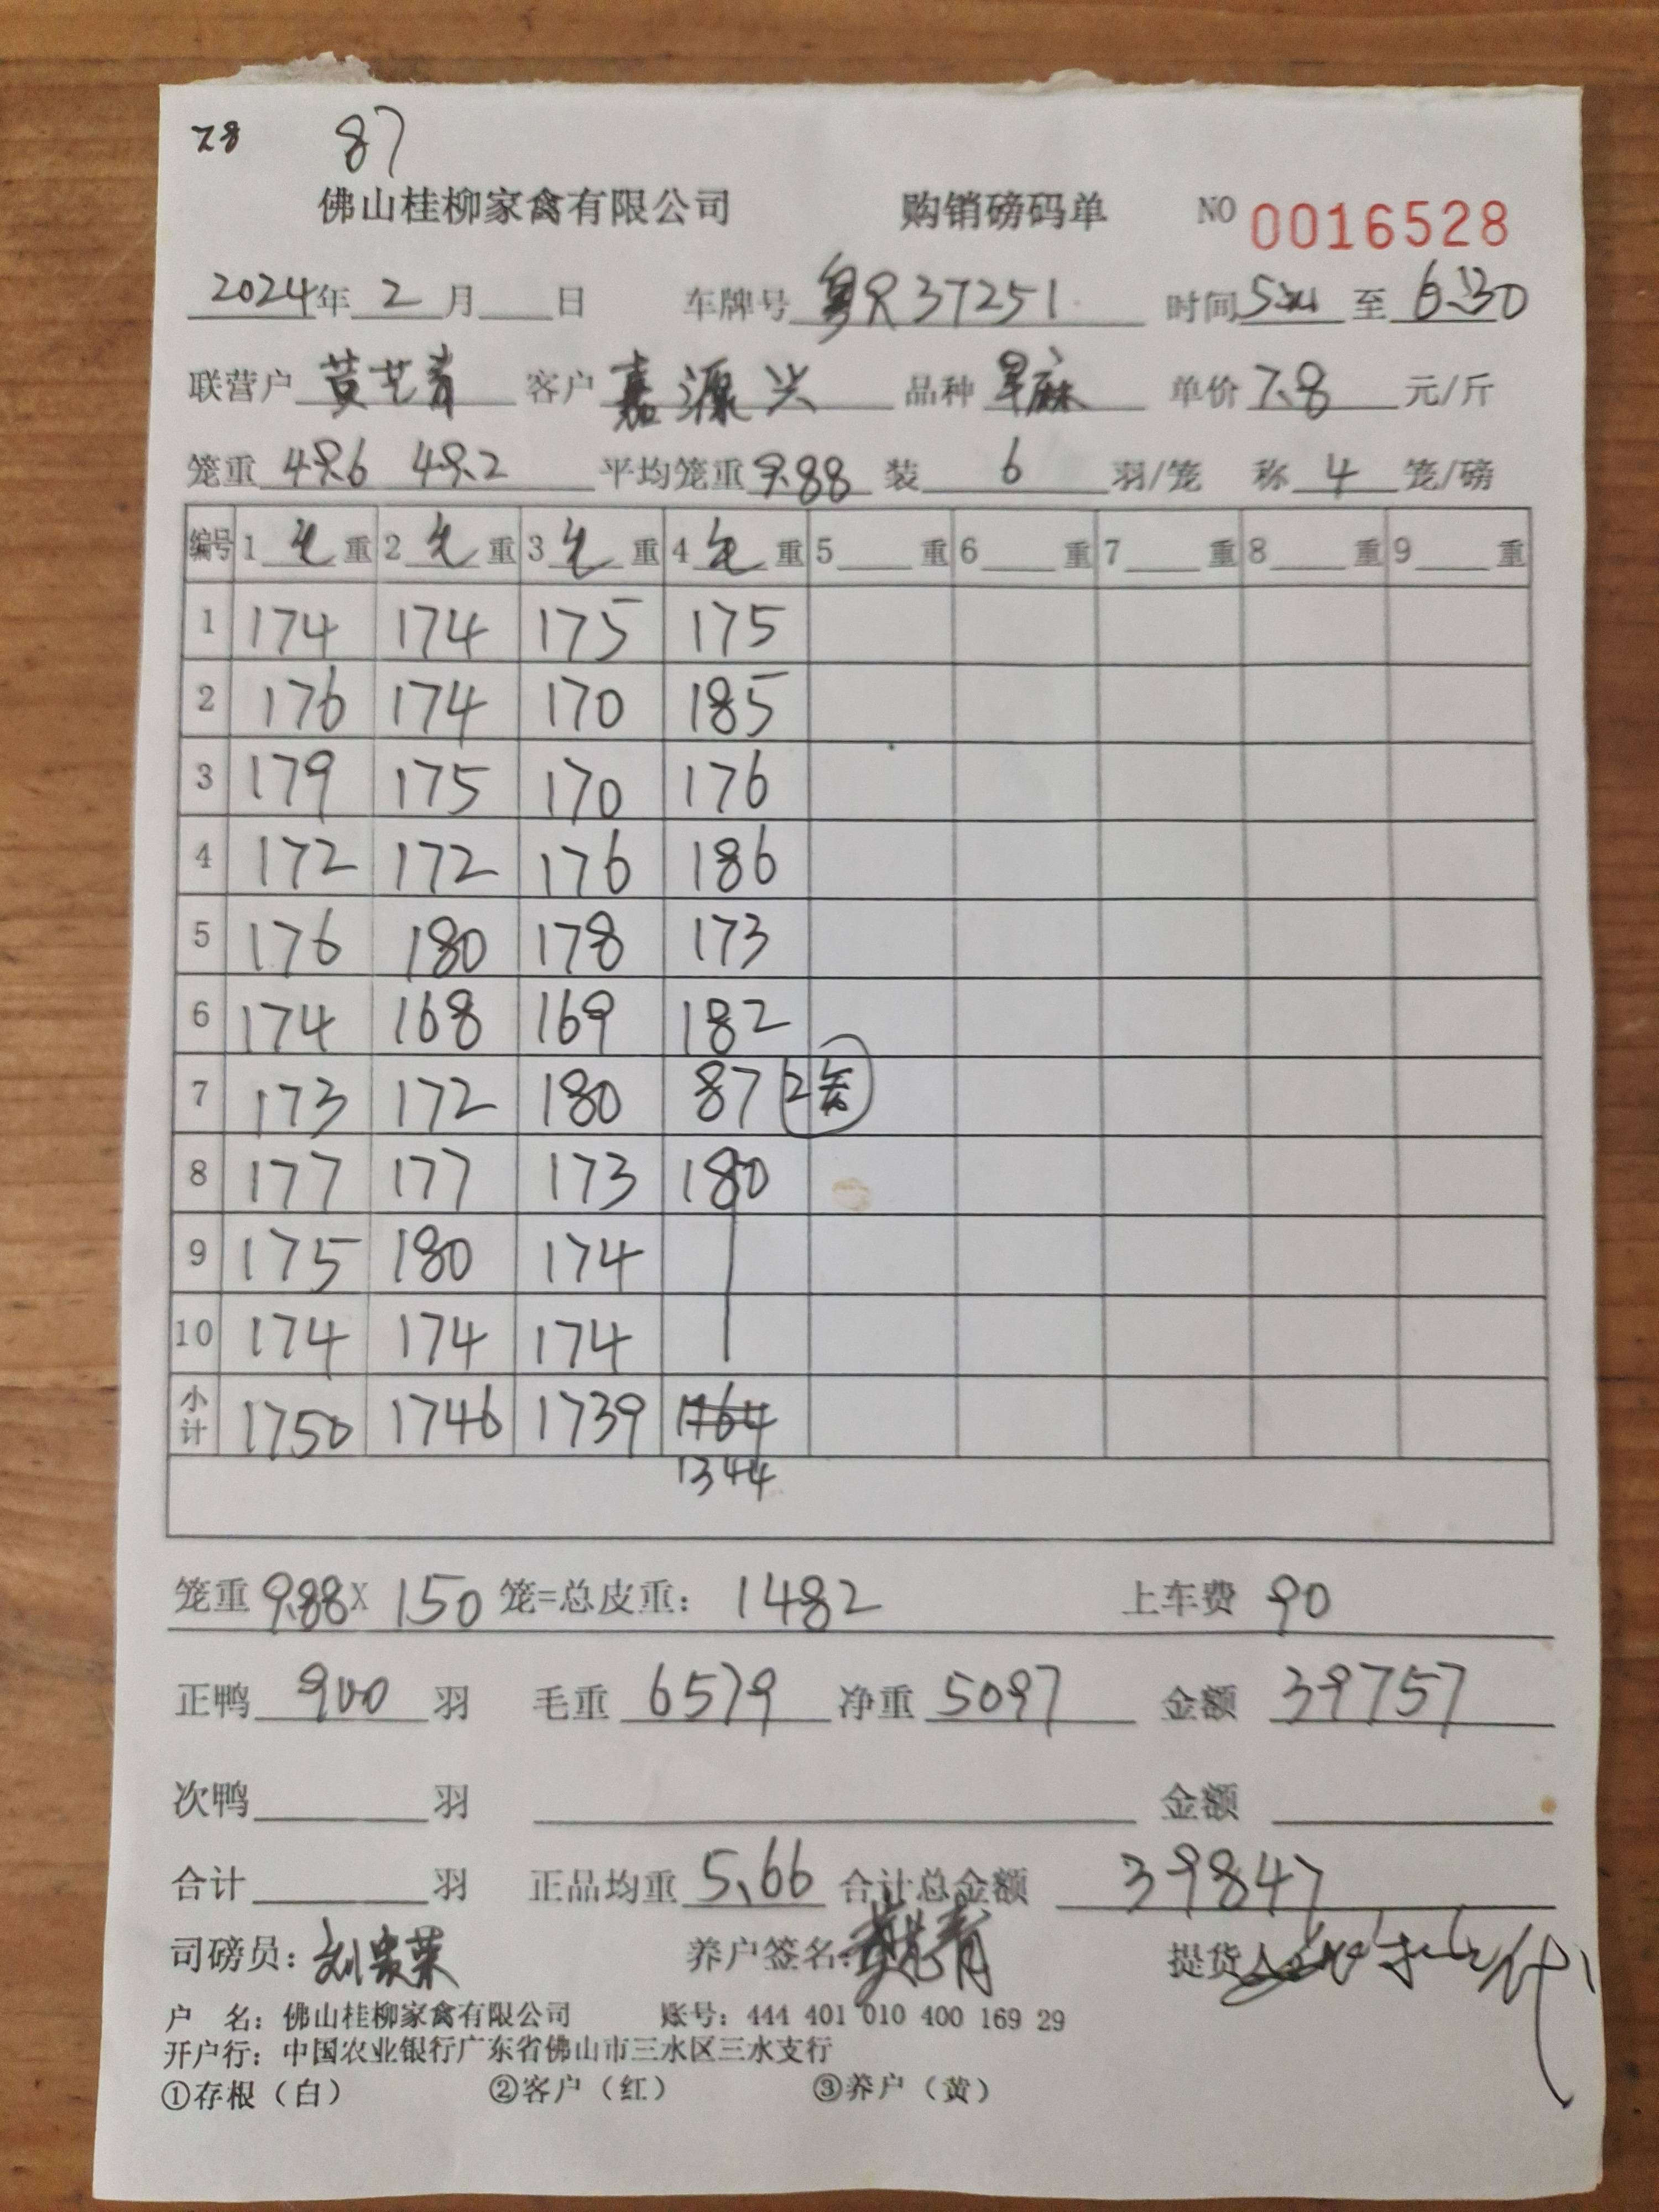 7.8 87
佛山桂柳家禽有限公司 购销磅码单 NO 0016528
2024年 2 月 日 车牌号 粤R37251 时间 至 6:30
联营户 黄艺青 客户 嘉源兴 品种 旱麻 单价 7.8 元/斤
笼重 49.6 49.2 平均笼重 9.88 装 6 羽/笼 称 4 笼/磅
编号 1 毛 重 2 毛 重 3 毛 重 4 毛 重 5 重 6 重 7 重 8 重 9 重
1 174 174 175 175
2 176 174 170 185
3 179 175 170 176
4 172 172 176 186
5 176 180 178 173
6 174 168 169 182
7 173 172 180 87 2笼
8 177 177 173 180
9 175 180 174
10 174 174 174
小计 1750 1746 1739 1764
1344
笼重 9.88 X 150 笼=总皮重: 1482 上车费 90
正鸭 900 羽 毛重 6579 净重 5097 金额 39757
次鸭 羽 金额
合计 羽 正品均重 5.66 合计总金额 39847
司磅员: 养户签名: 黄艺青 提货人
户 名: 佛山桂柳家禽有限公司 账号: 444 401 010 400 169 29
开户行: 中国农业银行广东省佛山市三水区三水支行
①存根（白） ②客户（红） ③养户（黄）